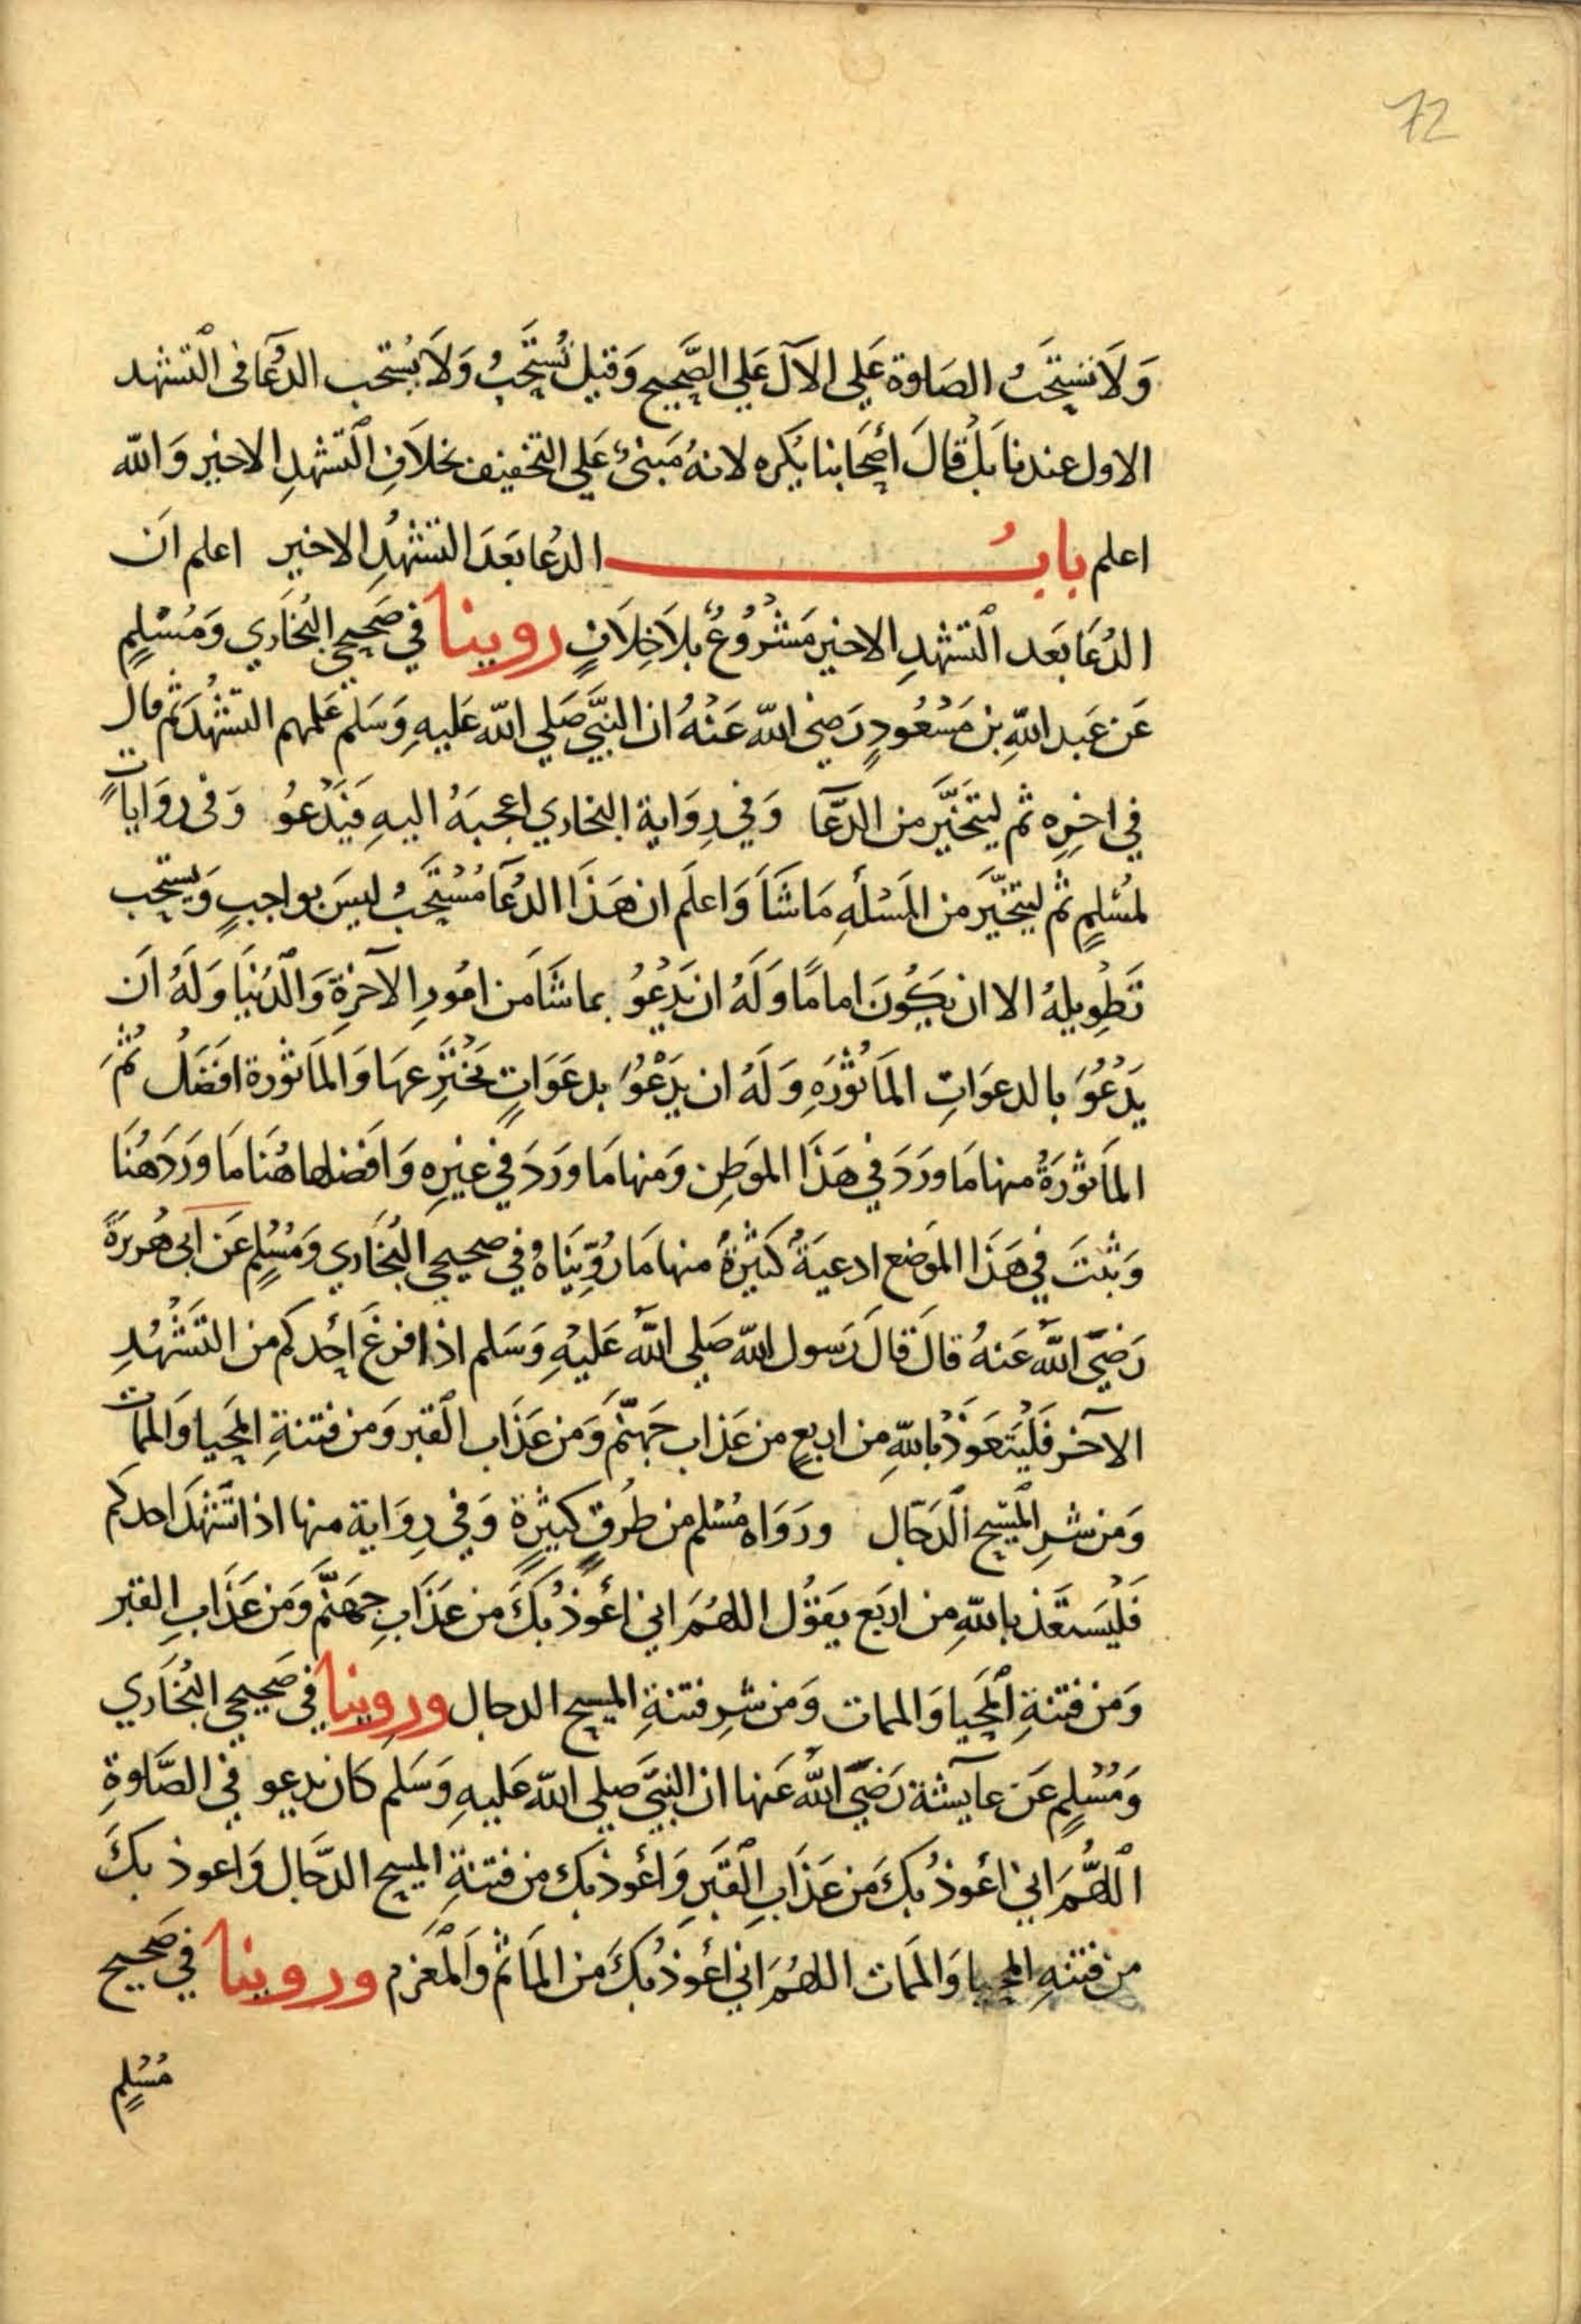 72
وَلَا تستحَبُّ الصَلوة عَلي الآل عَلي الصَّحِيح وَقيل تُستَحَبُّ وَلَا يُستحب الدُعَآ في التشهد
الاول عندنا بَل قالَ أصحَابنا يكره لانهُ مَبنيٌّ عَلي التخفيف بخلَافِ التشهدِ الاخير وَالله
اعلم بابُ الدعا بَعدَ التشهدِ الاخير اعلم اَن
الدُعَا بَعد التشهدِ الاخير مَشرُوعٌ بلَا خِلَافٍ روينا في صَحِيحي البُخَاري وَمُسْلِمٍ
عَن عَبد اللهِ بن مَسْعُودٍ رَضي الله عَنْهُ ان النبيَّ صَلي الله عَليهِ وَسَلم عَلمهم التشهُّدَ ثم قال
في اخرِه ثم ليتَخيَّر من الدعَآ وَفي رِوَاية البخاري اعجبَهُ اليهِ فيَدْعُو وَفي روَاياتٍ
لمُسْلِمٍ ثم ليتخيَّر من المَسْلَهِ مَا شَآَ وَاعلَم ان هَذَا الدُعَآ مُسْتحَبٌّ ليسَ بواجبٍ وَيستحب
تَطوِيلهُ الا ان يكُونَ امامًا وَلَهُ ان يَدْعُوُ بما شَآَ من امُورِ الآخرَةِ وَالدُنيَا وَلَهُ اَن
يَدْعُوَ بالدعوَاتِ المَأثورَهِ وَلَهُ ان يَدْعُوَ بدعَوَاتٍ يَختَرِعهَا وَالمَأثورة افضَلُ ثُمَّ
المَأثورَةُ منها مَا وَرَدَ في هَذَا الموَطِن وَمنها مَا وَرَدَ في غيرِه وَافضلها هُنَا مَا وَرَدَ هُنَا
وَثبتَ في هَذَا الموَضع ادعيَةٌ كَثيرَةٌ منها مَا رُوِّينَاهُ في صحيحي البُخَاري وَمُسْلِمٍ عَن اَبي هُريرَةَ
رَضيَ اللهُ عَنهُ قالَ قالَ رَسول الله صَلي اللهُ عَليْهِ وَسَلم اذا فرغَ احدكم من التَشَهُّدِ
الآخر فَليَتَعَوَّذْ باللهِ من اربعٍ من عَذاب جَهنَّم وَمن عَذَاب القبر وَمن فتنةِ المَحيا وَالممات
وَمن شرِ المَسِيح الدَجَّال ورَوَاه مُسْلم من طُرقٍ كثيرَةٍ وَفي رِوَاية منها اذا تَشهَّدَ احدكم
فَليَستَعَذ باللهِ من اربَع يقوُل اللهُمَ اني أعُوذُ بكَ من عَذَابِ جهَنَّم وَمن عَذَابِ القبر
وَمن فتنةِ المَحيا وَالممات وَمن شرِ فتنةِ المسيح الدجال وروينا في صَحيحي البُخَاري
وَمُسْلِمٍ عَن عآيشة رَضيَ اللهُ عَنها ان النبيَّ صلي الله عَليهِ وَسَلم كان يدعو في الصَّلوةِ
اللهُمَّ اني اعوذُ بكَ من عَذَابِ القَبرِ وَأعُوذ بك من فتنةِ المسيح الدَّجَال وَاعوذ بكَ
من فتنهِ المحيا وَالممَات اللهُمَ اني أعُوذ بكَ من المَأثم وَالمَغرم وروينا في صَحيح
مُسْلِمٍ